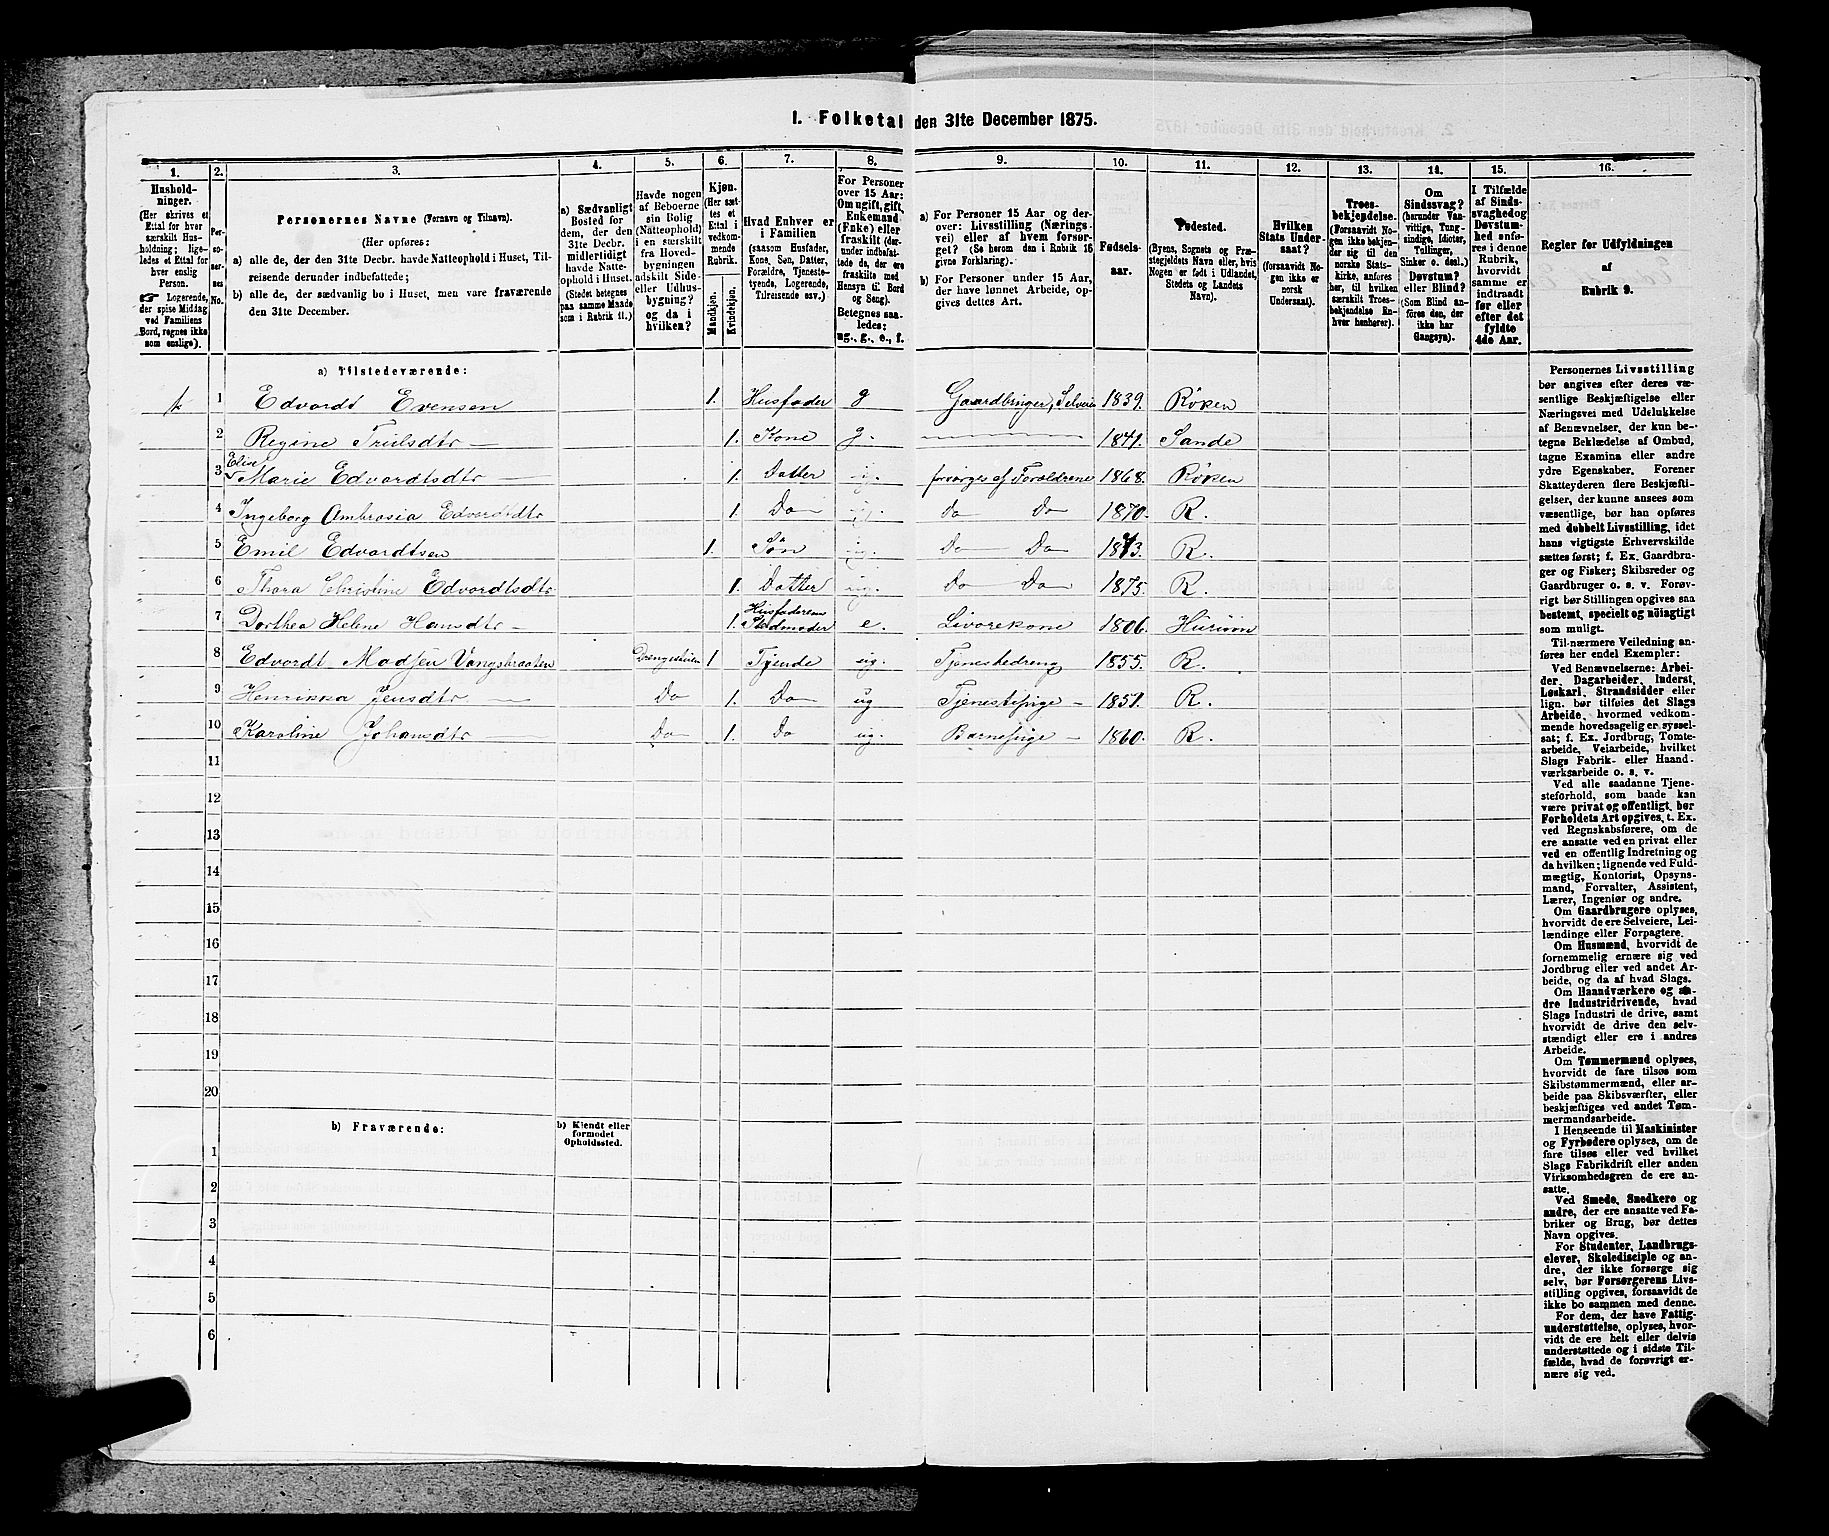 1. Folketal den 31te December 1875.
1. 2. 3. 4. 5. 6. 7. 8. 9. 10. 11. 12. 13. 14. 15. 16.
Hushold-
ninger.
(Her skrives et
Ettal for hver
særskilt Hus-
holdning; lige-
ledes et Ettal for
hver enslig
Person.
☛ Logerende,
der spise Middag
ved Familiens
Bord, regnes ikke
som enslige).
Per-
so-
ner-
nes
No.
Personernes Navne (Fornavn og Tilnavn).
(Her opføres:
a) alle de, der den 31te Decbr. havde Natteophold i Huset, Til-
reisende derunder indbefattede;
b) alle de, der sædvanlig bo i Huset, men vare fraværende
den 31te December.
a) Sædvanligt
Bosted for
dem, der den
31te Decbr.
midlertidigt
havde Natte-
ophold i Huset.
(Stedet betegnes
paa samme Maade
som i Rubrik 11.)
Havde nogen
af Beboerne
sin Bolig
(Natteophold)
i en særskilt
fra Hoved-
bygningen
adskilt Side-
eller Udhus-
bygning?
og da i
hvilken?
Kjøn.
(Her sæt-
tes et
Ettal i
vedkom-
mende
Rubrik.
Mandkjøn.
Kvindekjøn.
Hvad Enhver er
i Familien
(saasom Husfader,
Kone, Søn, Datter,
Forældre, Tjeneste-
tyende, Logerende,
Tilreisende osv.)
For Personer
over 15 Aar:
Om ugift, gift,
Enkemand
(Enke) eller
fraskilt (der-
under indbefat-
tede de, der ere
fraskilte med
Hensyn til Bord
og Seng).
Betegnes saa-
ledes:
ug., g., e., f.
a) For Personer 15 Aar og der-
over: Livsstilling (Nærings-
vei) eller af hvem forsør-
get? (Se herom den i Rubrik 16
givne Forklaring).
b) For Personer under 15 Aar,
der have lønnet Arbeide, op-
gives dettes Art.
Fødsels-
aar.
Fødested.
(Byens, Sognets og Præ-
stegjeldets Navn eller, hvis
Nogen er født i Udlandet,
Stedets og Landets
Navn).
Hvilken
Stats Under-
saat?
(forsaavidt No-
gen ikke er
norsk
Undersaat).
Troes-
bekjendelse.
(Forsaavidt No-
gen ikke bekjen-
der sig til den
norske Stats-
kirke, anføres
her, til hvilken
særskilt Troes-
bekjendelse En-
hver henhører).
Om
Sindssvag?
(herunder Van-
vittige, Tung-
sindige, Idioter,
Tullinger,
Sinker o. desl.)
Døvstum?
eller Blind?
(Som Blind an-
føres den, der
ikke har
Gangsyn).
I Tilfælde
af Sinds-
svaghed og
Døvstum-
hed anfø-
res i denne
Rubrik,
hvorvidt
samme er
indtraadt
før eller
efter det
fyldte
4de Aar.
Regler for Udfyldningen
af
Rubrik 9.
a) Tilstedeværende:
1 Edvardt Evensen 1. Husfader g Gaardbruger, Selveier 1839. Røken
2 Regine Trulsdtr 1. Kone g. 1841. Sande
Elise
3 Marie Edvardtsdtr 1. Datter ug. forsørges af Forældrene 1868. Røken
4 Ingeborg Ambrosia Edvardtdtr 1. Do ug. Do Do 1870. R.
5 Emil Edvardtsen 1. Søn ug. Do Do 1873. R.
6 Thora Christine Edvardtsdtr 1. Datter ug. Do Do 1875. R.
Husfaderens
7 Dorthea Helene Hansdtr 1. Stedmoder e. Livørekone 1806. Hurum
8 Edvardt Madsen Vangsbraaten Drengestuen 1 Tyende ug. Tjenestedreng 1855. R.
9 Henrikka Jensdtr Do 1. Do ug Tjenestepige 1851. R.
10 Karoline Johansdtr Do 1. Do ug. Barnepige 1860. R.
11
12
13
14
15
16
17
18
19
20
b) Fraværende:
b) Kjendt eller
formodet
Opholdssted.
1
2
3
4
5
6
Personernes Livsstilling
bør angives efter deres væ-
sentlige Beskjæftigelse eller
Næringsvei med Udelukkelse
af Benævnelser, der kun be-
tegne Beklædelse af Ombud,
tagne Examina eller andre
ydre Egenskaber. Forener
Skatteyderen flere Beskjæfti-
gelser, der kunne ansees som
væsentlige, bør han opføres
med dobbelt Livsstilling, idet
hans vigtigste Erhvervskilde
sættes først; f. Ex. Gaardbru-
ger og Fisker; Skibsreder og
Gaardbruger o. s. v. Forøv-
rigt bør Stillingen opgives saa
bestemt, specielt og nøiagtigt
som muligt.
Til nærmere Veiledning an-
føres her endel Exempler:
Ved Benævnelserne: Arbei-
der, Dagarbeider, Inderst,
Løskarl, Strandsidder eller
lign. bør tilføies det Slags
Arbeide, hvormed vedkom-
mende hovedsagelig er syssel-
sat; f. Ex. Jordbrug, Tomte-
arbeide, Veiarbeide, hvilket
Slags Fabrik- eller Haand-
værksarbeide o. s. v.
Ved alle saadanne Tjene-
steforhold, som baade kan
være privat og offentligt, bør
Forholdets Art opgives, t. Ex.
ved Regnskabsførere, om de
ere ansatte ved en privat eller
ved en offentlig Indretning og
da hvilken; lignende ved Fuld-
mægtig, Kontorist, Opsyns-
mand, Forvalter, Assistent,
Lærer, Ingeniør og andre.
Om Gaardbrugere oplyses,
hvorvidt de ere Selveiere, Lei-
lændinge eller Forpagtere.
Om Husmænd, hvorvidt de
fornemmelig ernære sig ved
Jordbrug eller ved andet Ar-
beide, og da af hvad Slags.
Om Haandværkere og an-
dre Industridrivende, hvad
Slags Industri de drive, samt
hvorvidt de drive den selv-
stændigt eller ere i andres
Arbeide.
Om Tømmermænd oplyses,
hvorvidt de fare tilsøs som
Skibstømmermænd, eller ar-
beide paa Skibsværfter, eller
beskjæftiges ved andet Tøm-
mermandsarbeide.
I Henseende til Maskinister
og Fyrbødere oplyses, om de
fare tilsøs eller ved hvilket
Slags Fabrikdrift eller anden
Virksomhedsgren de ere an-
satte.
Ved Smede, Snedkere og
andre, der ere ansatte ved Fa-
briker og Brug, bør dettes
Navn opgives.
For Studenter, Landbrugs-
elever, Skoledisciple og an-
dre, der ikke forsørge sig
selv, bør Forsørgerens Livs-
stilling opgives, forsaavidt de
ikke bo sammen med denne.
For dem, der have Fattig-
understøttelse, oplyses, hvor-
vidt de ere helt eller delvis
understøttede og i sidste Til-
fælde, hvad de forøvrigt er-
nære sig ved.